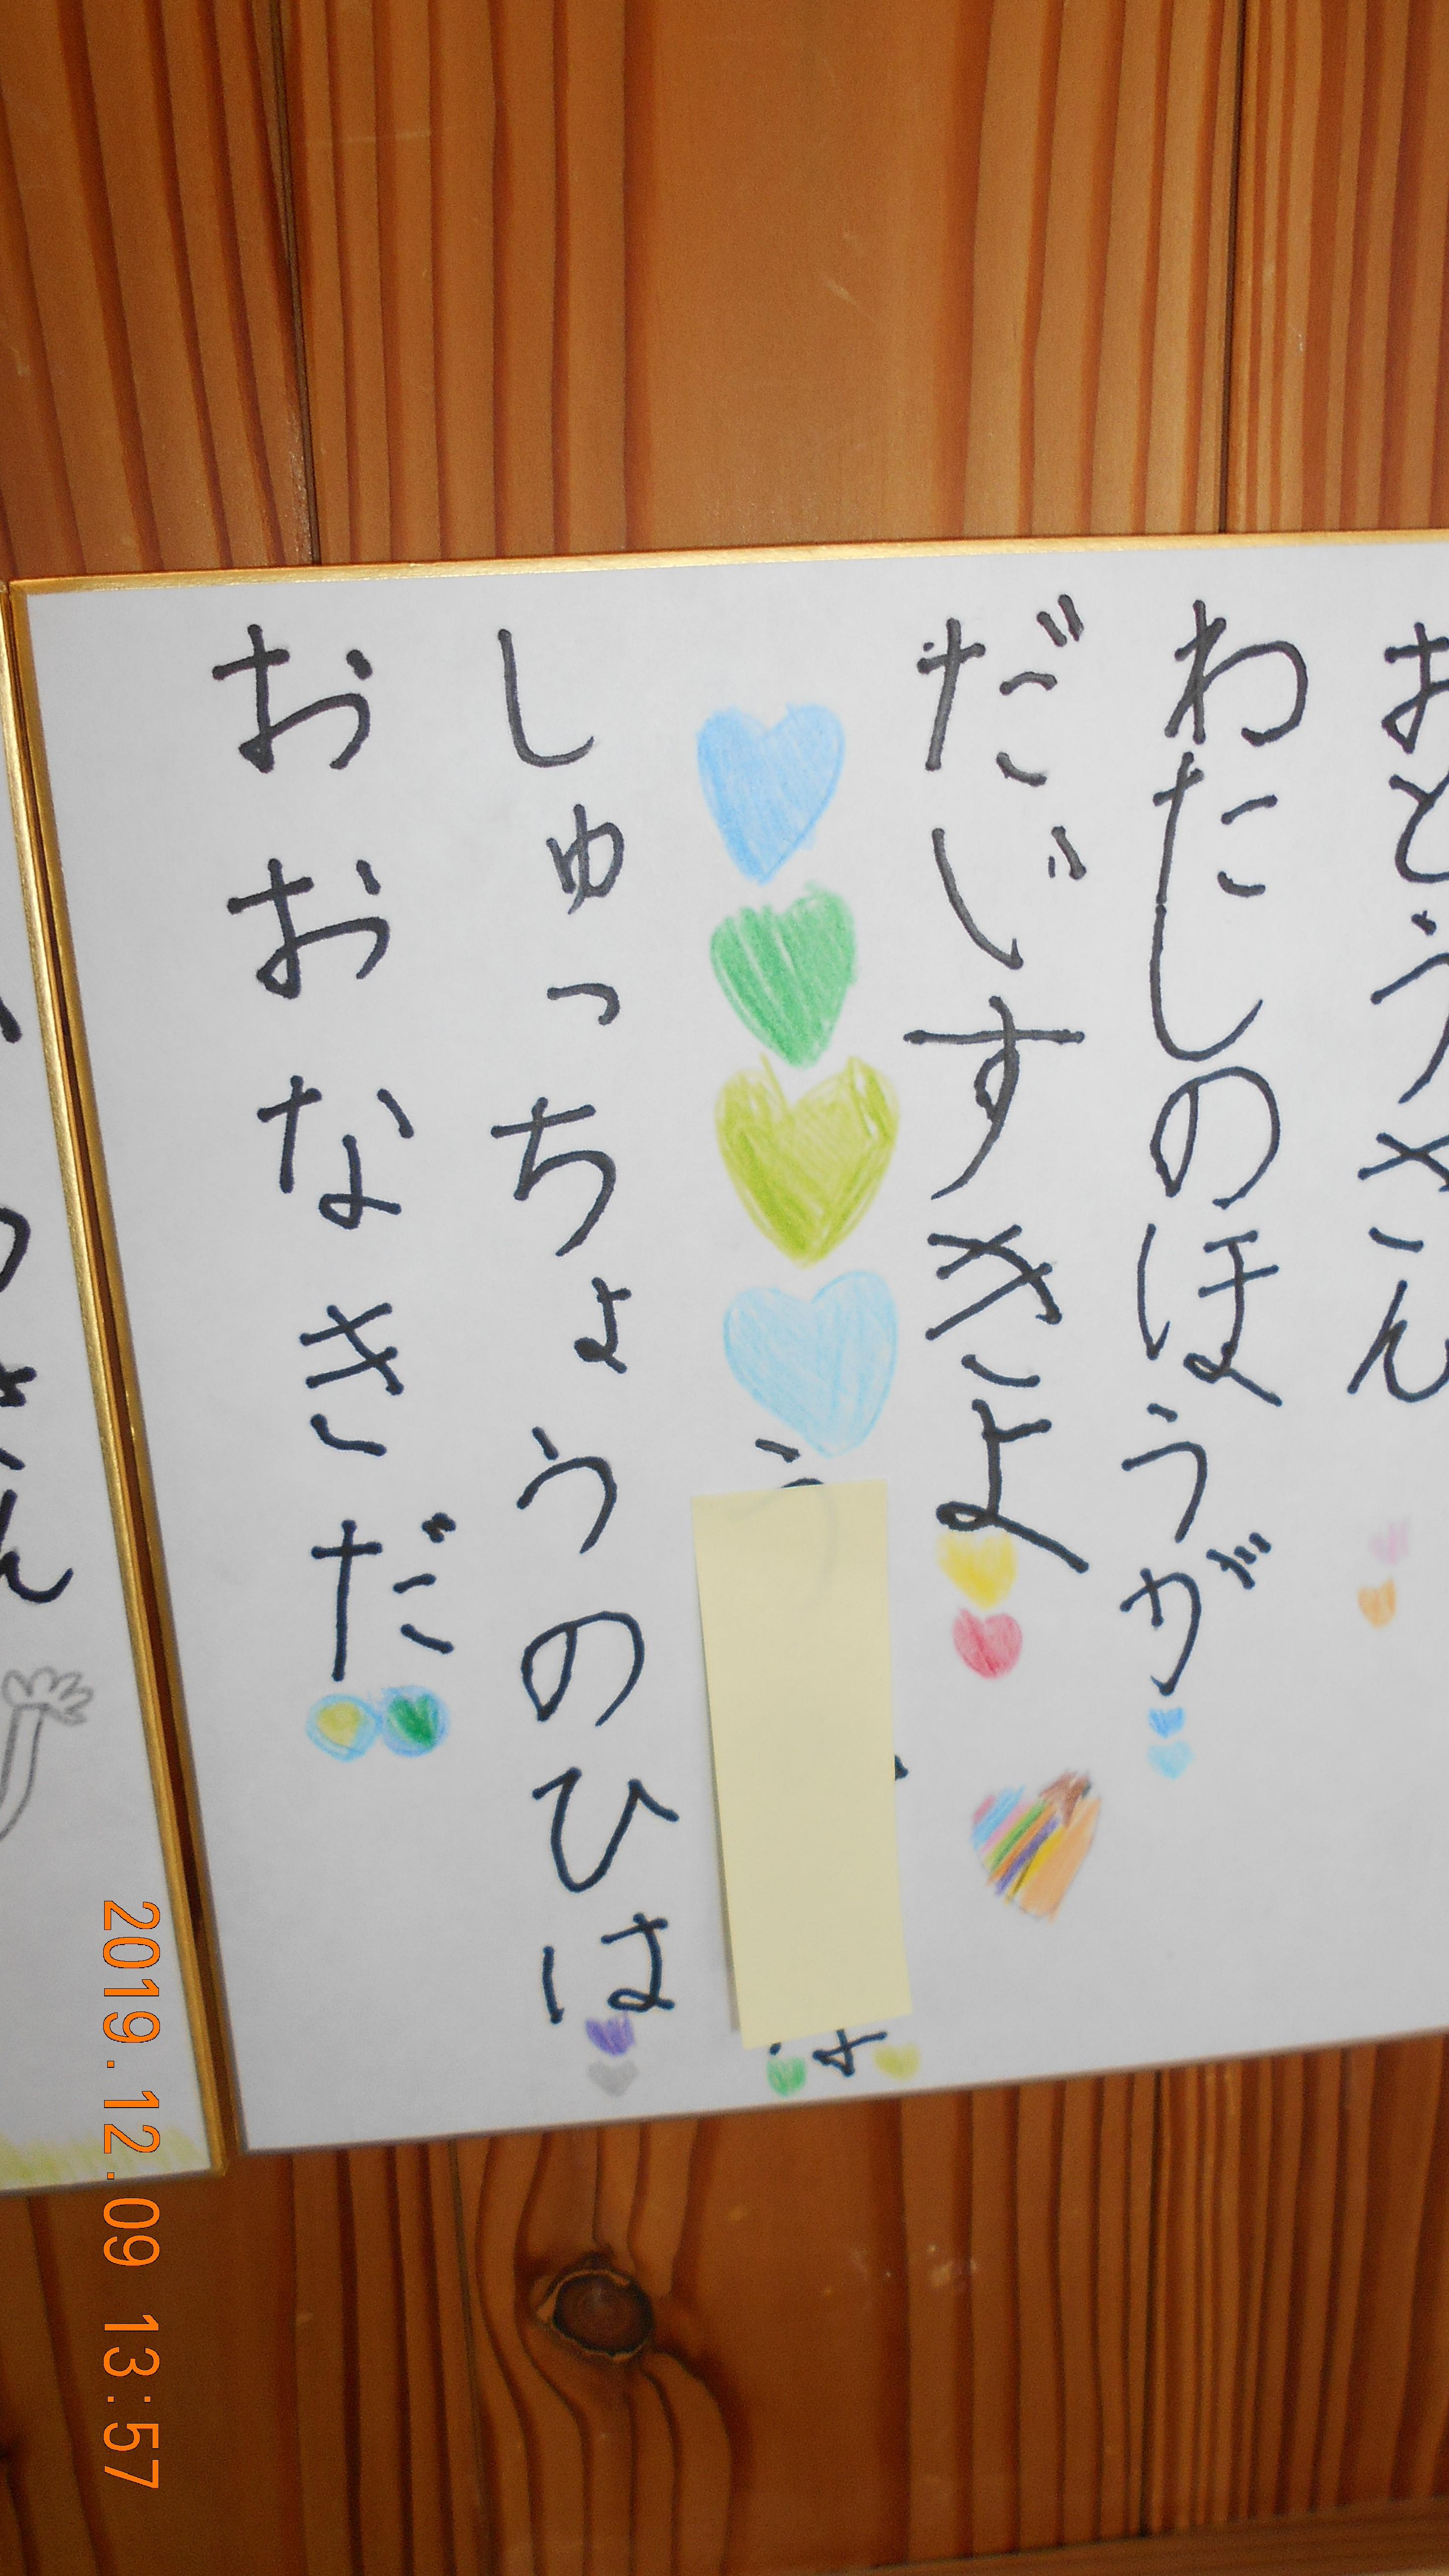 おとうさん
わたしのほうが
だいじすきよ
う
しゅっちょうのひは
おおなきだ
2019.12.09 13:57